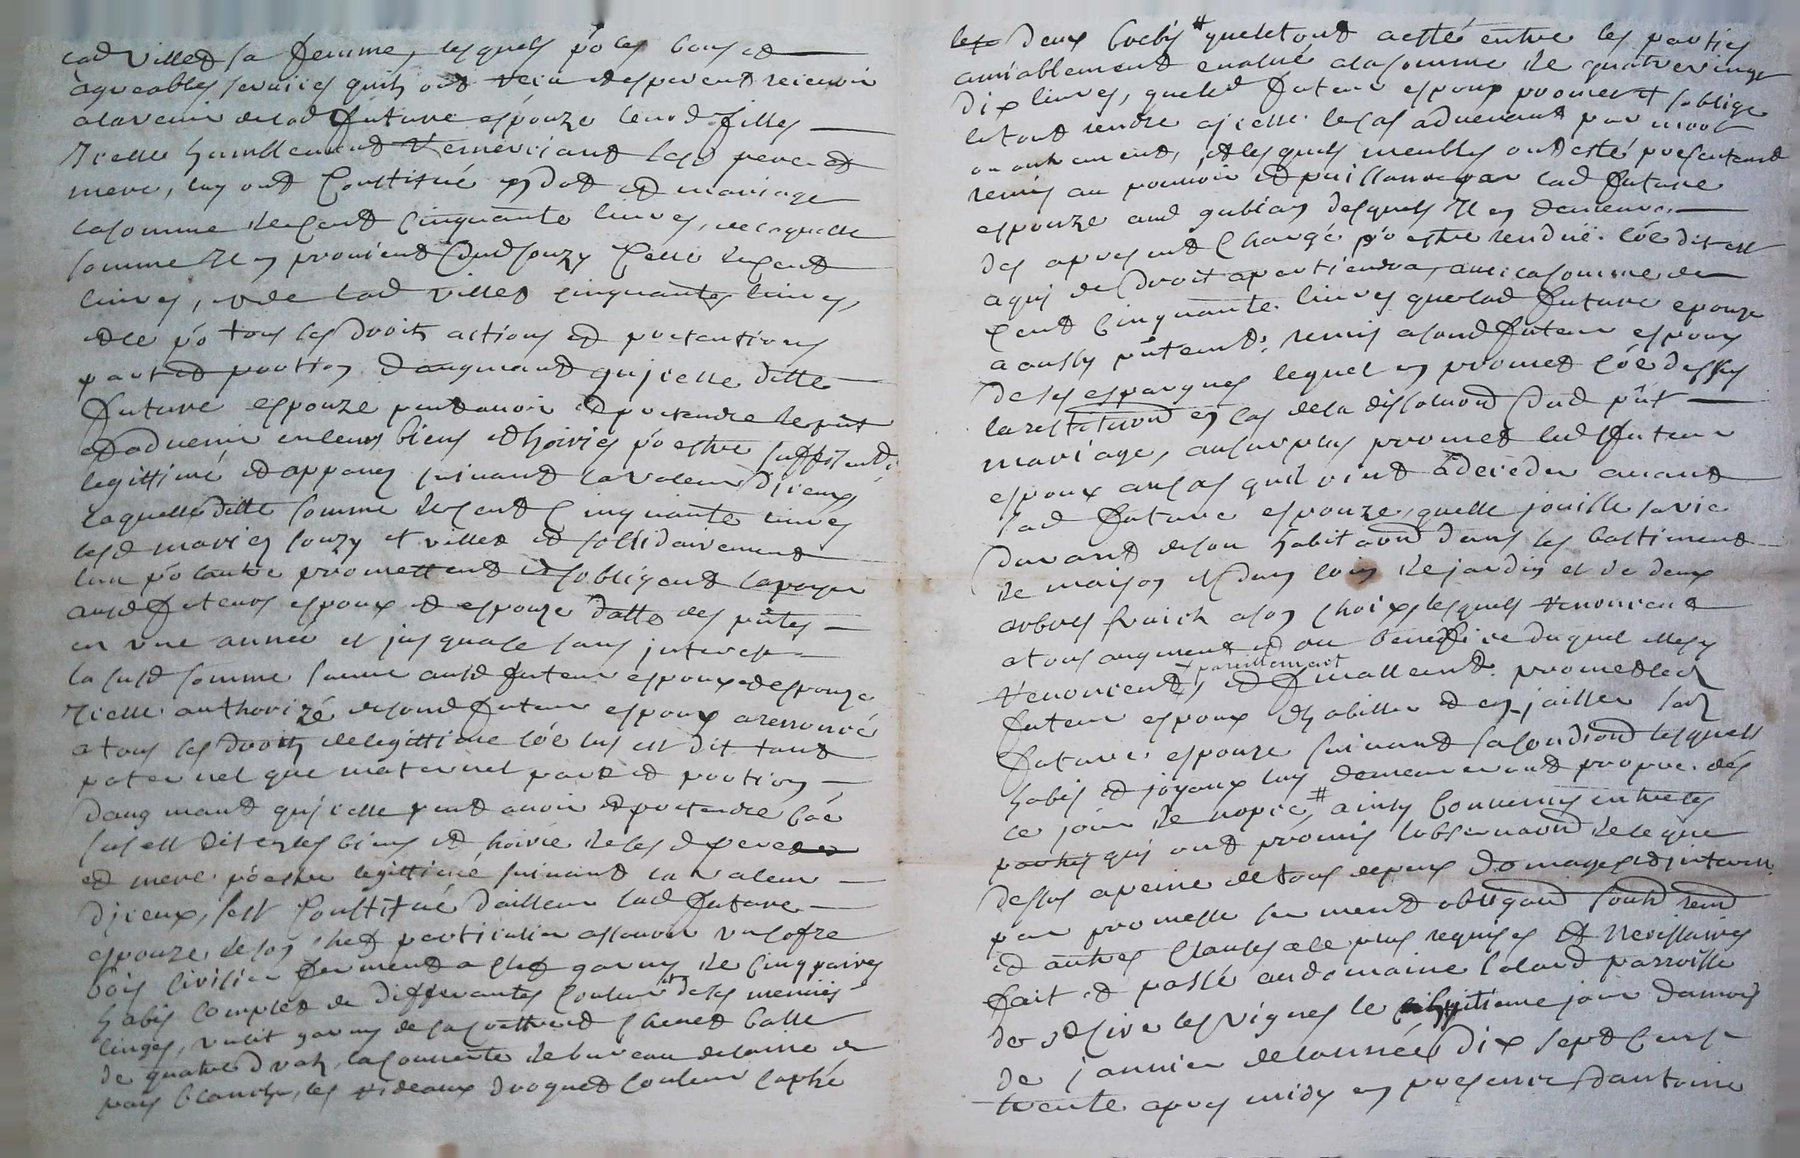 lad villed sa femme, lesquels po les bons et
agreables services quils ont receu et esperent recevoir
a lavenir de lad future espouze leurd fille
Icelle humblement remerciant lesd pere et
mere, luy ont constitué en dot et mariage
la somme de cent cinquante livres, de laquelle
somme Il en provient dud souzy celle de cent
livres, & de lad villed cinquante livres,
et ce po tous les droits actions et pretentions
part et portion daugmand qujcelle ditte
future espouze peut avoir et pretendre de pnt
et advenir en leurs biens et hoiries po estre suffisent
legittime et appanes suivant la valeur Diceux
laquelle ditte somme de cent cinquante livres
lesd mariés souzy et villed et sollidairement
lun po lautre promettent et sobligent la payer
ausd futeurs espoux et espouze datte des pntes
en une année et jusqua ce sans jnterest
la susd somme sauve ausd futeur espoux et espouze
Icelle authorizé de sond futeur espoux a renoncé
a tous les droits de legittime coe sus est dit tant
paternel que maternel part et portion
daugmand qujcelle peut avoir et pretendre coe
sus est dit en les biens et hoirie de ses d pere
et mere po estre legittimé suivant la valeur
djceux, sest constitué dailleur lad future
espouze de son chef particulier assavoir un cofre
bois cerisier fermant a clef garny de cinq paires
habis complet de differantes couleur et de ses menues
linges, un lit garny de sa couttre et chevet balle
de quatre drats, la couverte de bureau de laine de
pays blanche, les rideaux droguet couleur caphé
les deux brebis # quel tout a esté entre les parties
amiablement evalué a la somme de quatre vingt
dix livres, queled futeur espoux promet et soblige
le tout rendre a jcelle le cas advenant par mort
ou autrement, et lesquels meubles ont esté presentement
remis au pouvoir et puissance par lad future
espouze aud gubian desquels Il en demeure
des apresent chargé po estre rendue coe dit est
a qui de droit apartiendra, avec la somme de
cent cinquante livres que lad future epouze
a aussy pntement remis a sond futeur espoux
de ses espargnes lequel en promet coe dessus
la restitution en cas de la dissolution dud pnt
mariage, au surplus promet led futeur
espoux au cas quil vint a deceder avant
lad future espouze, quelle jouisse sa vie
durant de son habitation dans les battiment
de maison et dun coin de jardin et de deux
arbres fruich a son choix, lesquels renoncent
a tous augment et au beneffice duquel elle sy
renoncent pareillement et finallement promet led
futeur espoux dhabiller et enjailler lad
future espouze suivant sa condition lesquels
habis et joyaux luy demeureront propre dés
le jour de nopce, # ainsy convenus entre les
parties qui ont promis lobservation de ce que
dessus a peine de tous depens domages et interest
par promesse serment obligation soub renon
et autres clauses a ce plus requises et necessaires
fait et passé au domaine Coland parroisse
de st Cire les Vignes le huitieme jour du mois
de janvier de lannée dix sept cent
trente apres midy en presence dantoine